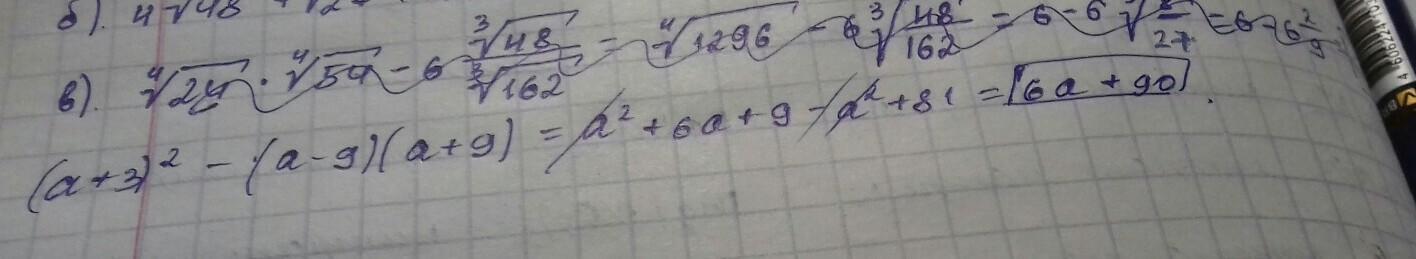 б). 4√48
в). ⁴√24 · ⁴√54 - 6 ³√48 / ³√162 = ⁴√1296 - 6 ³√48/162 = 6 - 6 ³√8/27 = 6 - 6 2/9
(a+3)² - (a-9)(a+9) = a² + 6a + 9 - a² + 81 = 6a + 90.